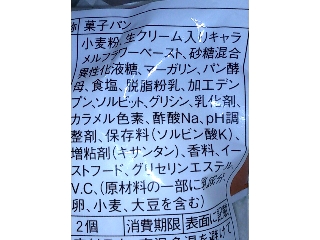 称 菓子パン
小麦粉、生クリーム入りキャラ
メルフラワーペースト、砂糖混合
異性化液糖、マーガリン、パン酵
母、食塩、脱脂粉乳、加工デン
プン、ソルビット、グリシン、乳化剤、
カラメル色素、酢酸Na、pH調
整剤、保存料(ソルビン酸K)、
増粘剤(キサンタン)、香料、イー
ストフード、グリセリンエステル、
V.C、(原材料の一部に乳成分、
卵、小麦、大豆を含む)
2個 消費期限 表面に記載
高温多湿を避けて、